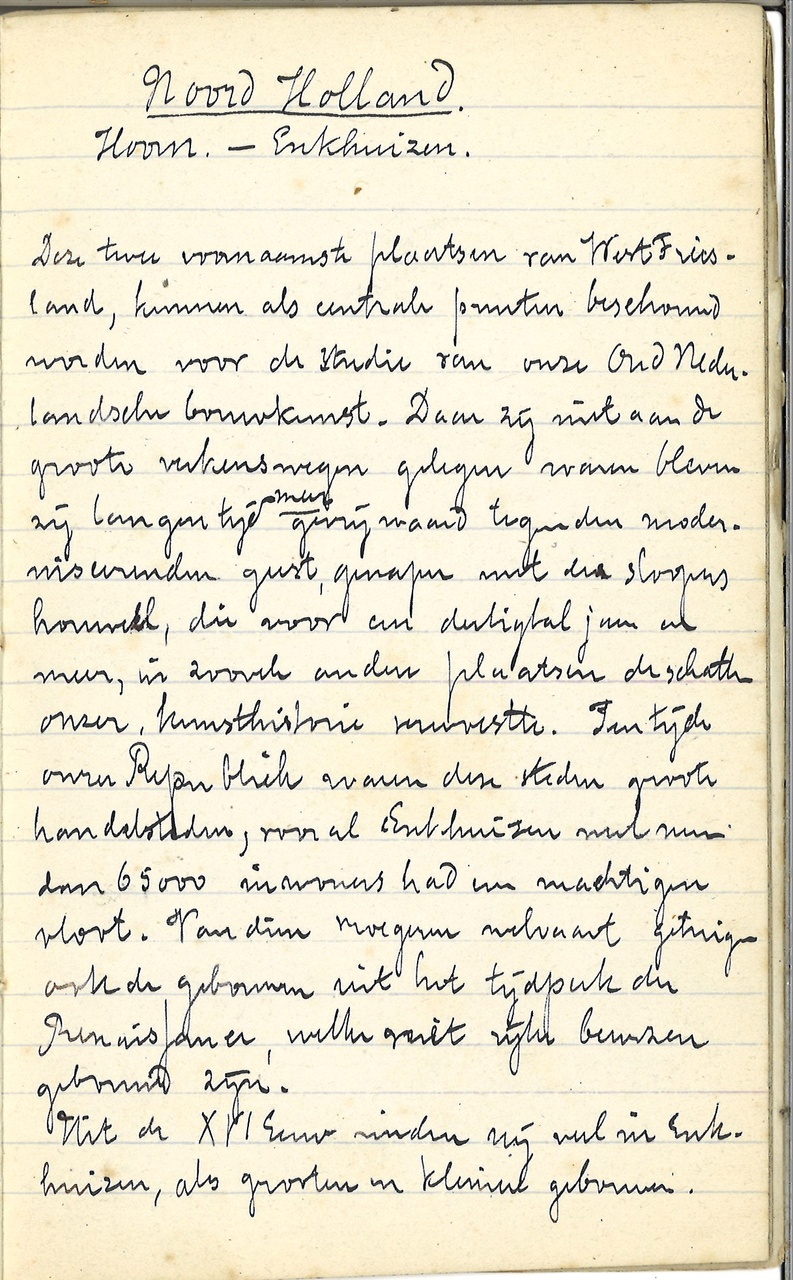 Noord Holland.
Hoorn. — Enkhuizen.
Deze twee voornaamste plaatsen van West Fries-
land, kunnen als centrale punten beschouwd
worden voor de studie van onze Oud Neder-
landsche bouwkunst. Daar zij niet aan de
groote verkenswegen gelegen waren bleven
zij langen tijd meer gevrijwaard tegen den moder-
niseerenden geest, gewapen met den sloopers
houweel, die voor een dertigtal jaren en
meer, in zoovele andere plaatsen de schatten
onzer kunsthistorie verwoestte. Ten tijde
onzer Republiek waren deze steden groote
handelsteden, vooral Enkhuizen met meer
dan 65000 inwoners had een machtigen
vloot. Van dien vroegeren welvaart getuigen
ook de gebouwen uit het tijdperk der
Renaissance, welke rijke beurzen
gebouwd zijn.
Uit de XVI Eeuw vinden wij veel in Enk-
huizen, als grooten en kleinen gebouwen.